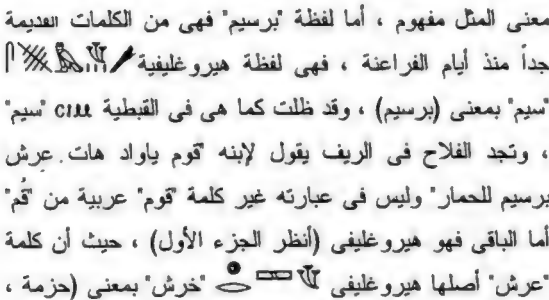 معنى المثل مفهوم ، أما لفظة "برسيم" فهى من الكلمات القديمة
جداً منذ أيام الفراعنة ، فهى لفظة هيروغليفية
"سيم" بمعنى (برسيم) ، وقد ظلت كما هى فى القبطية ⲥⲓⲙ "سيم"
، وتجد الفلاح فى الريف يقول لإبنه "قوم ياواد هات عرش
برسيم للحمار" وليس فى عبارته غير كلمة "قوم" عربية من "قُم"
أما الباقى فهو هيروغليفى (أنظر الجزء الأول) ، حيث أن كلمة
"عرش" أصلها هيروغليفى "خرش" بمعنى (حزمة ،